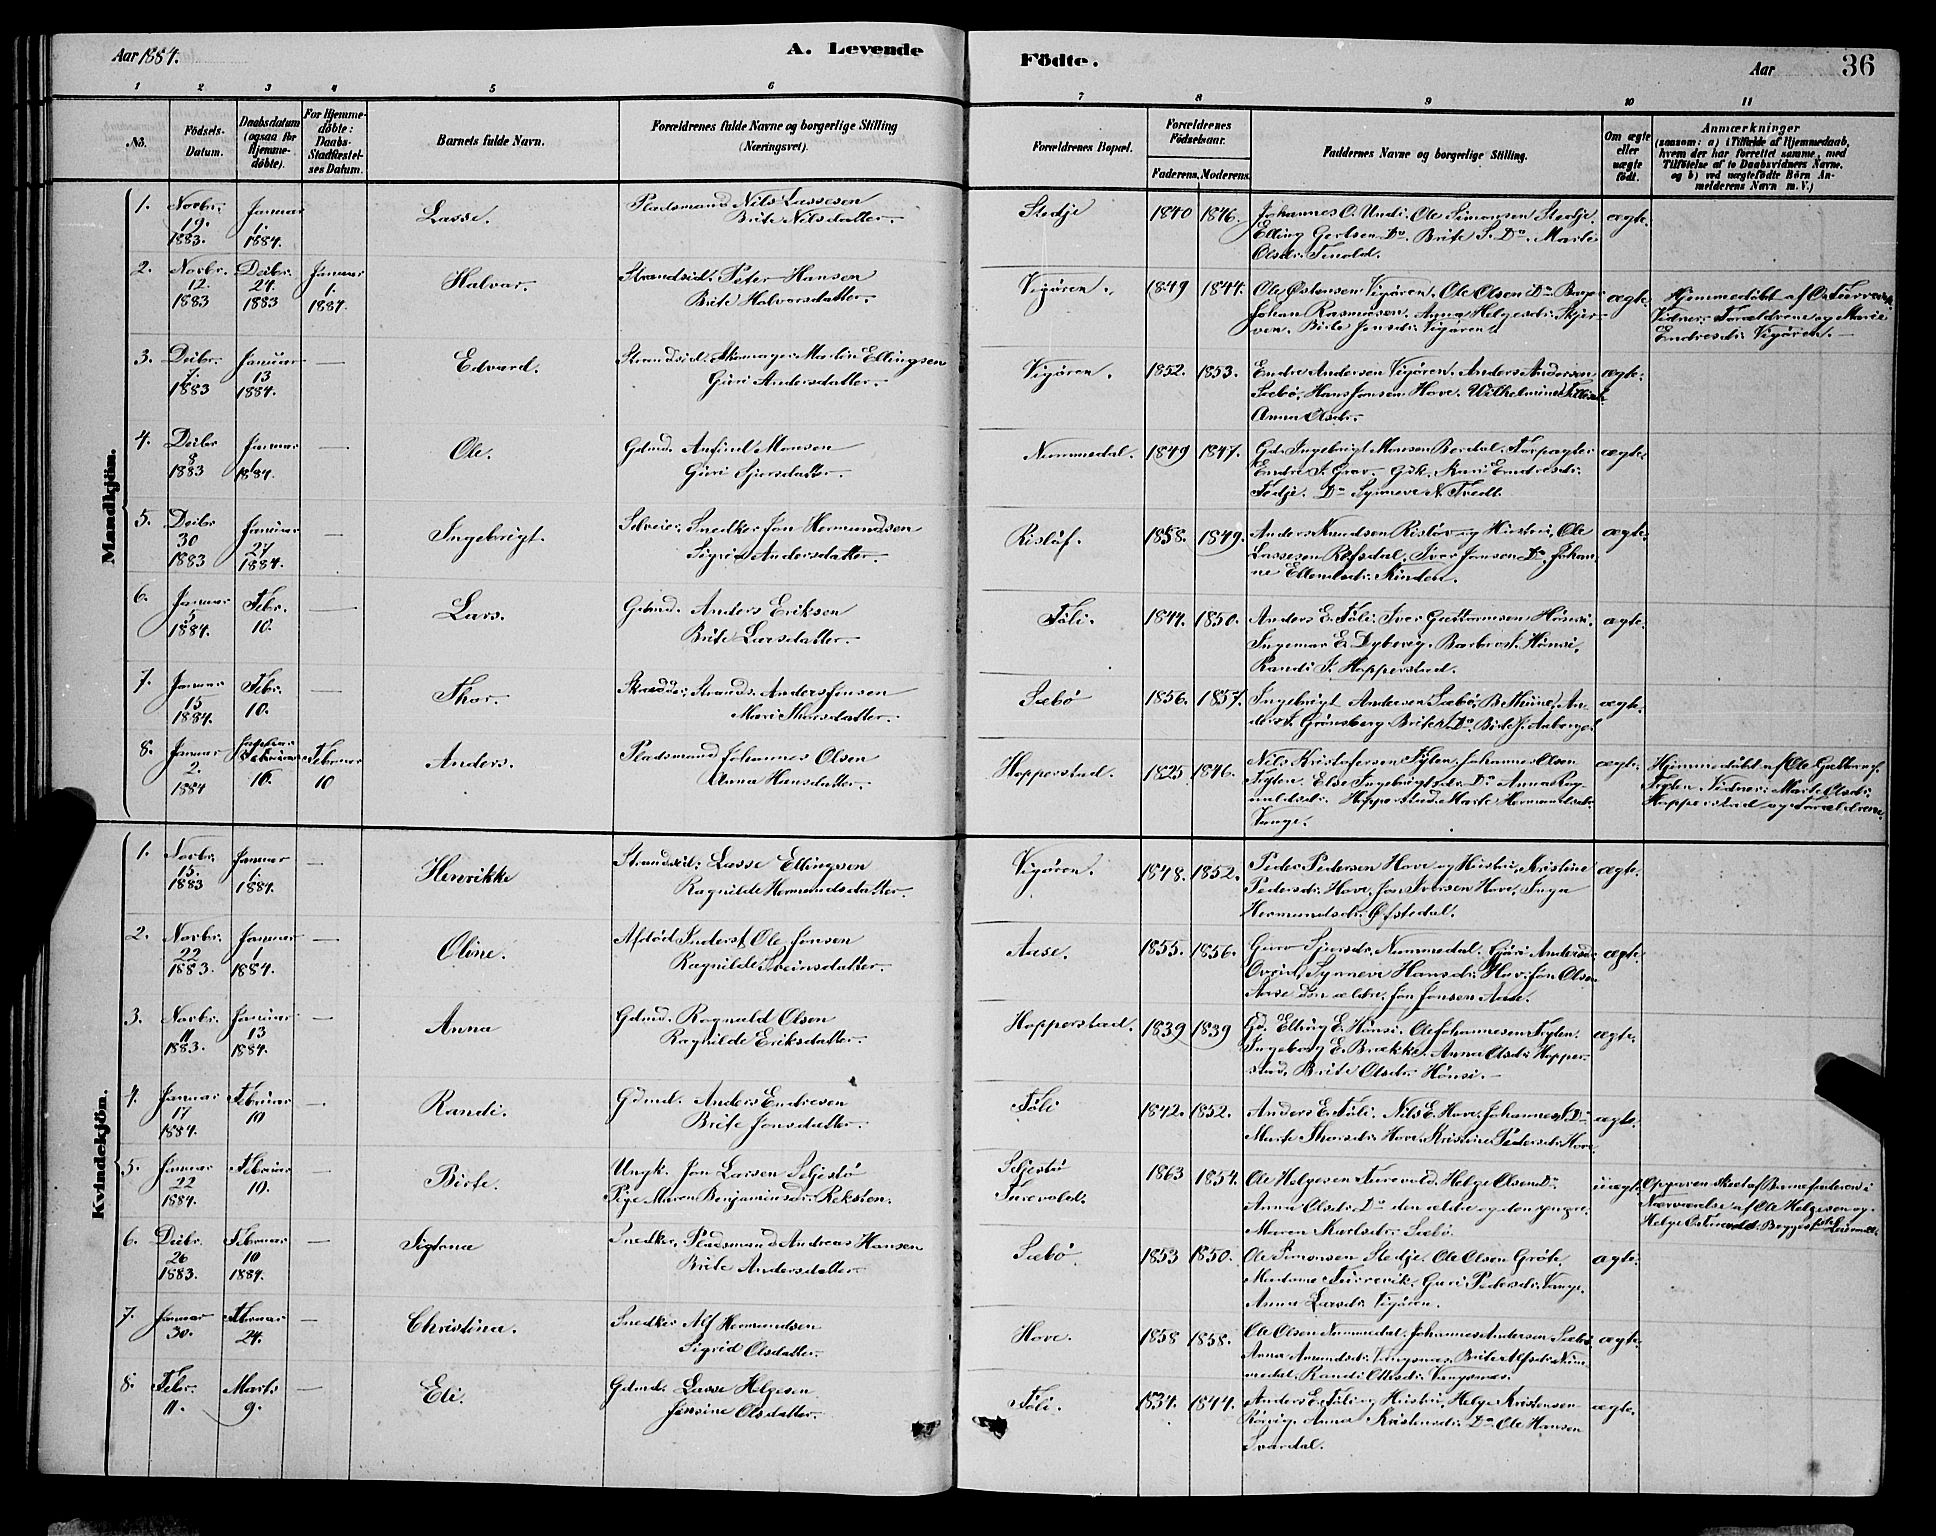 Aar 1884.
A. Levende
Födte.
Aar
36
1 2 3 4 5 6 7 8 9 10 11
No.
Födsels-Datum.
Daabsdatum (ogsaa for Hjemmedöbte).
For Hjemmedöbte: Daabs-Stadfæstelses Datum.
Barnets fulde Navn.
Forældrenes fulde Navne og borgerlige Stilling
(Næringsvei).
Forældrenes Bopæl.
Forældrenes Födselsaar.
Faderens. Moderens.
Faddernes Navne og borgerlige Stilling.
Om ægte eller uægte födt.
Anmærkninger
(saasom: a) i Tilfælde af Hjemmedaab,
hvem der har forrettet samme, med
Tilföielse af to Daabsvidners Navne.
og b) ved uægtefödte Börn Anmelderens Navn m. V.)
Mandkjön.
1. Novbr. 19. 1883. Januar 1. 1884. Lasse. Pladsmand Nils Lassesen
Brite Nilsdatter. Stedje 1840 1846. Johannes O. Undi. Ole Simonsen Stedje.
Elling Gertsen Do. Brite S. Do. Marte
Olsdr. Tenold. ægte.
2. Novbr. 12. 1883 Decbr. 24. 1883 Januar 1. 1884. Halvar. Strandsid. Peter Hansen
Brite Halvorsdatter. Vigören. 1849 1844. Ole Østensen Vigören. Ole Olsen Do
Johan Rasmussen. Anna Helgesdr.
Brite Jonsdr. Vigören. ægte. Hjemmedöbt af
Vidner: Forældrene og Marie
Endresdr. Vigören.
3. Decbr. 7. 1883 Januar 13 1884. — Edvard. Strandsid. Skomager Martin Ellingsen
Guri Andersdatter. Vigören. 1852. 1853. Endre Andersen Vigören. Anders Andersen
Sæbö, Hans Jonsen Hove. Wilhelmine
Anna Olsdr. ægte.
4. Decbr 8 1883 Januar 1 1884. — Ole. Gdmd. Anfind Monsen
Guri Sjursdatter. Nummedal. 1849 1847. Gd. Ingebrigt Monsen Fordagter
Endre S. Grov. Gdk. Kari Endresdr.
Fedje. Do Synneve N. Tvedt. ægte
5. Decbr 30 1883 Januar 27 1884. — Ingebrigt. Selveier, Snedker Jon Hermundsen
Sigrid Andersdatter. Rislöf. 1858. 1849. Anders Knudsen Rislöv og Hustru, Ole
Lassesen Refsdal, Iver Jonsen Do, Johanne
Ellendsdr. Kinden. ægte.
6. Januar 5 1884. Febr. 10. — Lars. Gdmd. Anders Eriksen
Brite Larsdatter. Föli. 1844. 1850. Anders E. Föli. Iver Guttormsen Hönsi.
Ingemar E. Dybevig. Barbro I. Hönsi,
Randi I. Hopperstad. ægte.
7. Januar 15 1884. Febr. 10. — Thor. Skrædder, Strands. Anders Jensen
Mari Thorsdatter. Sæbö 1856. 1857. Ingebrigt Andersen Sæbö.
Grönsberg Brite ægte.
8. Januar 2. 1884 Februar 10. Februar 10 Anders. Pladsmand Johannes Olsen
Anna Hansdatter. Hopperstad. 1825 1846. Nils Kristofersen Tyten. Johannes Olsen
Tyten. Else Ingebrigtsdr. Do Anna Rognaldsdr.
Hopperstad. Marte Hermundsdr.
Vange. ægte. Hjemmedöbt af Ole
Vidner: Marte Olsdr.
Hopperstad og Forældrene.
Kvindekjön.
1. Novbr. 15. 1883 Januar 1. 1884. — Henrikke Strandsid. Lasse Ellingsen
Ragnilde Hermundsdatter. Vigören. 1848. 1852. Peder Pedersen Hove og Hustru, Kristine
Pedersdr. Hove, Jon Iversen Hove, Inga
Hermundsdr. Ofstedal. ægte.
2. Novbr. 22 1883. Januar 1 1884. — Oline. Afdöd Inderst Ole Jonsen
Ragnilde Sveinsdatter. Aase. 1855. 1856. Guro Sjursdr. Nummedal. Guri Andersdr.
Synneve Hansdr. Jon Olsen
Aase den ældre. Jon Jonsen Aase. ægte.
3. Novbr. 11 1883. Januar 13 1884. — Anna Gdmd. Rognald Olsen
Ragnilde Eriksdatter. Hopperstad. 1839 1839 Gd. Elling E. Hönsi. Ole Johannesen Tyten.
Ingeborg E. Brække. Anna Olsdr. Hopperstad,
Brite Olsdr. Hönsi. ægte.
4. Januar 17 1884. Februar 10 — Randi. Gdmd. Anders Endresen
Brite Jonsdatter. Föli 1842. 1852. Anders E. Föli. Nils E. Hove. Johannes N. Do
Marte Thorsdr. Hove. Kristine Pedersdr. Hove ægte.
5. Januar 22 1884. Februar 10. — Birte. Ungk. Jon Larsen Seljestö
Pige Maren Benjaminsdr. Reksten. Seljestö
Turevold. 1863 1854. Ole Helgesen Turevold. Helge Olsen Do
Anna Olsdr. Do den ældre og den yngre.
Maren Karlsdr. Sæbö. uægte Opgaven skeet af Barnefaderen i
Nærværelse af Ole Helgesen og
Helge
6. Decbr. 26 1883. Februar 10 1884. — Sigtona Snedker, Pladsmand Andreas Hansen
Brite Andersdatter. Sæbö 1853 1850. Ole Simonsen Stedje. Ole Olsen Gröte.
Madame Turrevik, Guri Pedersdr. Vange.
Anna Larsdr. Vigören. ægte.
7. Januar 30. Februar 24. — Christina. Snedker Alf Hermundsen
Sigrid Olsdatter. Hove. 1858 1858. Ole Olsen Nummedal. Johannes Andersen Sæbö
Anna Amundsdr. Vangsnæs. Brite Alfsdr. Nummedal.
Randi Olsdr. Vangsnæs. ægte.
8. Febr. 11. Marts 9. — Eli. Gdmd. Lasse Helgesen
Jensine Olsdatter. Föli. 1834. 1844. Anders E. Föli og Hustru, Helge Kristensen
Anna Kristensdr. Do. Ole Hansen
Svardal. ægte.